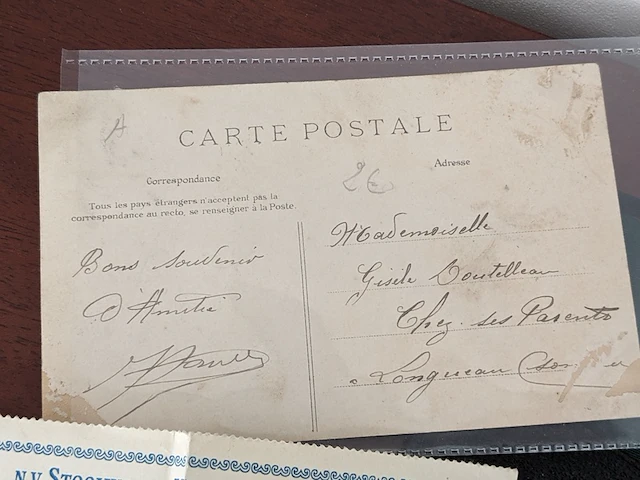 A
CARTE POSTALE
Correspondance
Adresse
2€
Tous les pays étrangers n'acceptent pas la
correspondance au recto, se renseigner à la Poste.
Bons souvenir
d'Amitié
Mademoiselle
Gisèle Boutelleau
Chez ses Parents
à Longueau
N.V.